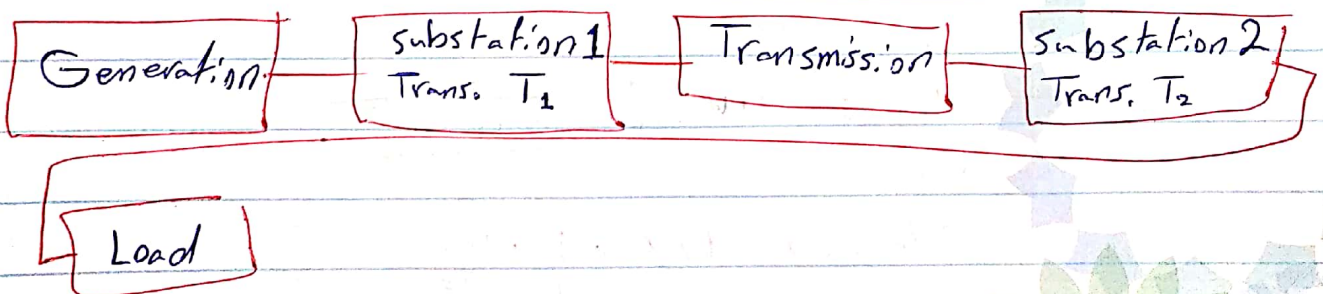 Generation
substation 1
Trans. T1
Transmission
substation 2
Trans. T2
Load